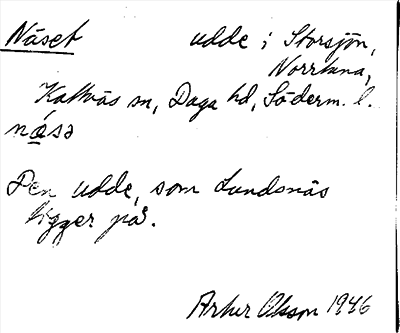 Näset udde i Storsjön,
Norrtuna,
Kattnäs sn, Daga hd, Söderm. l.
næ̀sə
Den udde, som Lundsnäs
ligger på.
Artur Olsson 1946